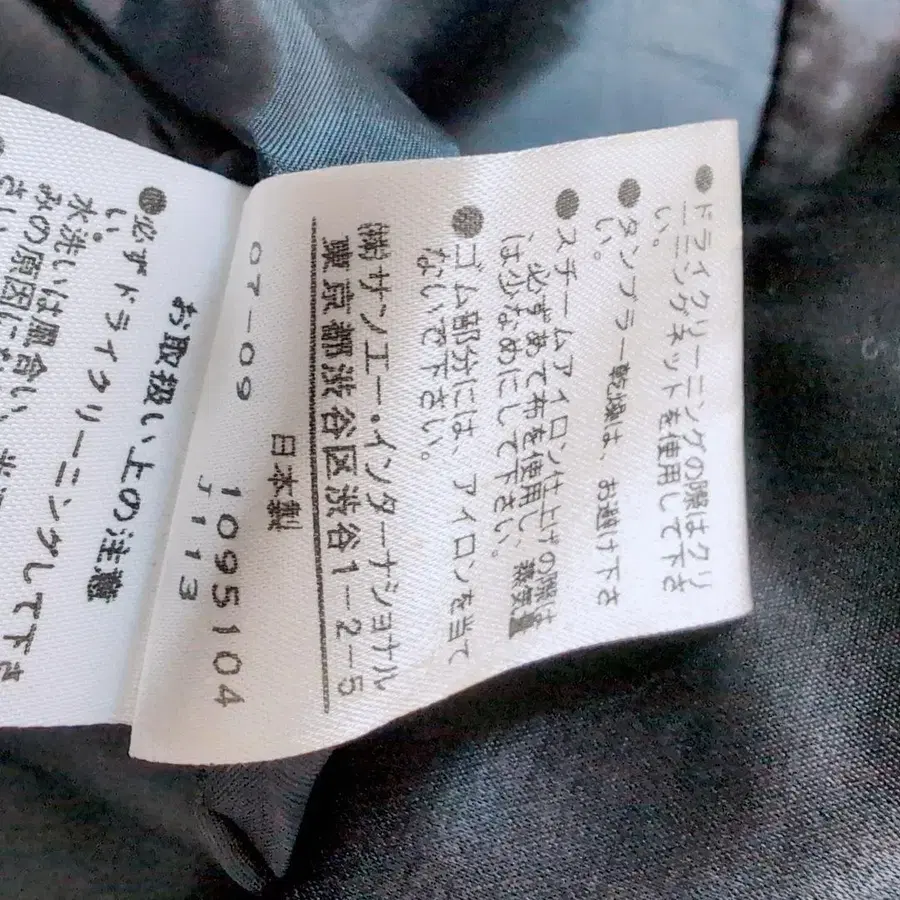 ●ドライクリーニングの際はクリ
ーニングネットを使用して下さ
い。
●タンブラー乾燥は、お避け下さ
い。
●スチームアイロン仕上げの際は
必ずあて布を使用し、蒸気量
は少なめにして下さい。
●ゴム部分には、アイロンを当て
ないで下さい。
㈱サンエー・インターナショナル
東京都渋谷区渋谷1-2-5
日本製
07-09 1095104
J113
お取扱い上の注意
●必ずドライクリーニングして下さ
い。
水洗いは風合い
みの原因に
さい